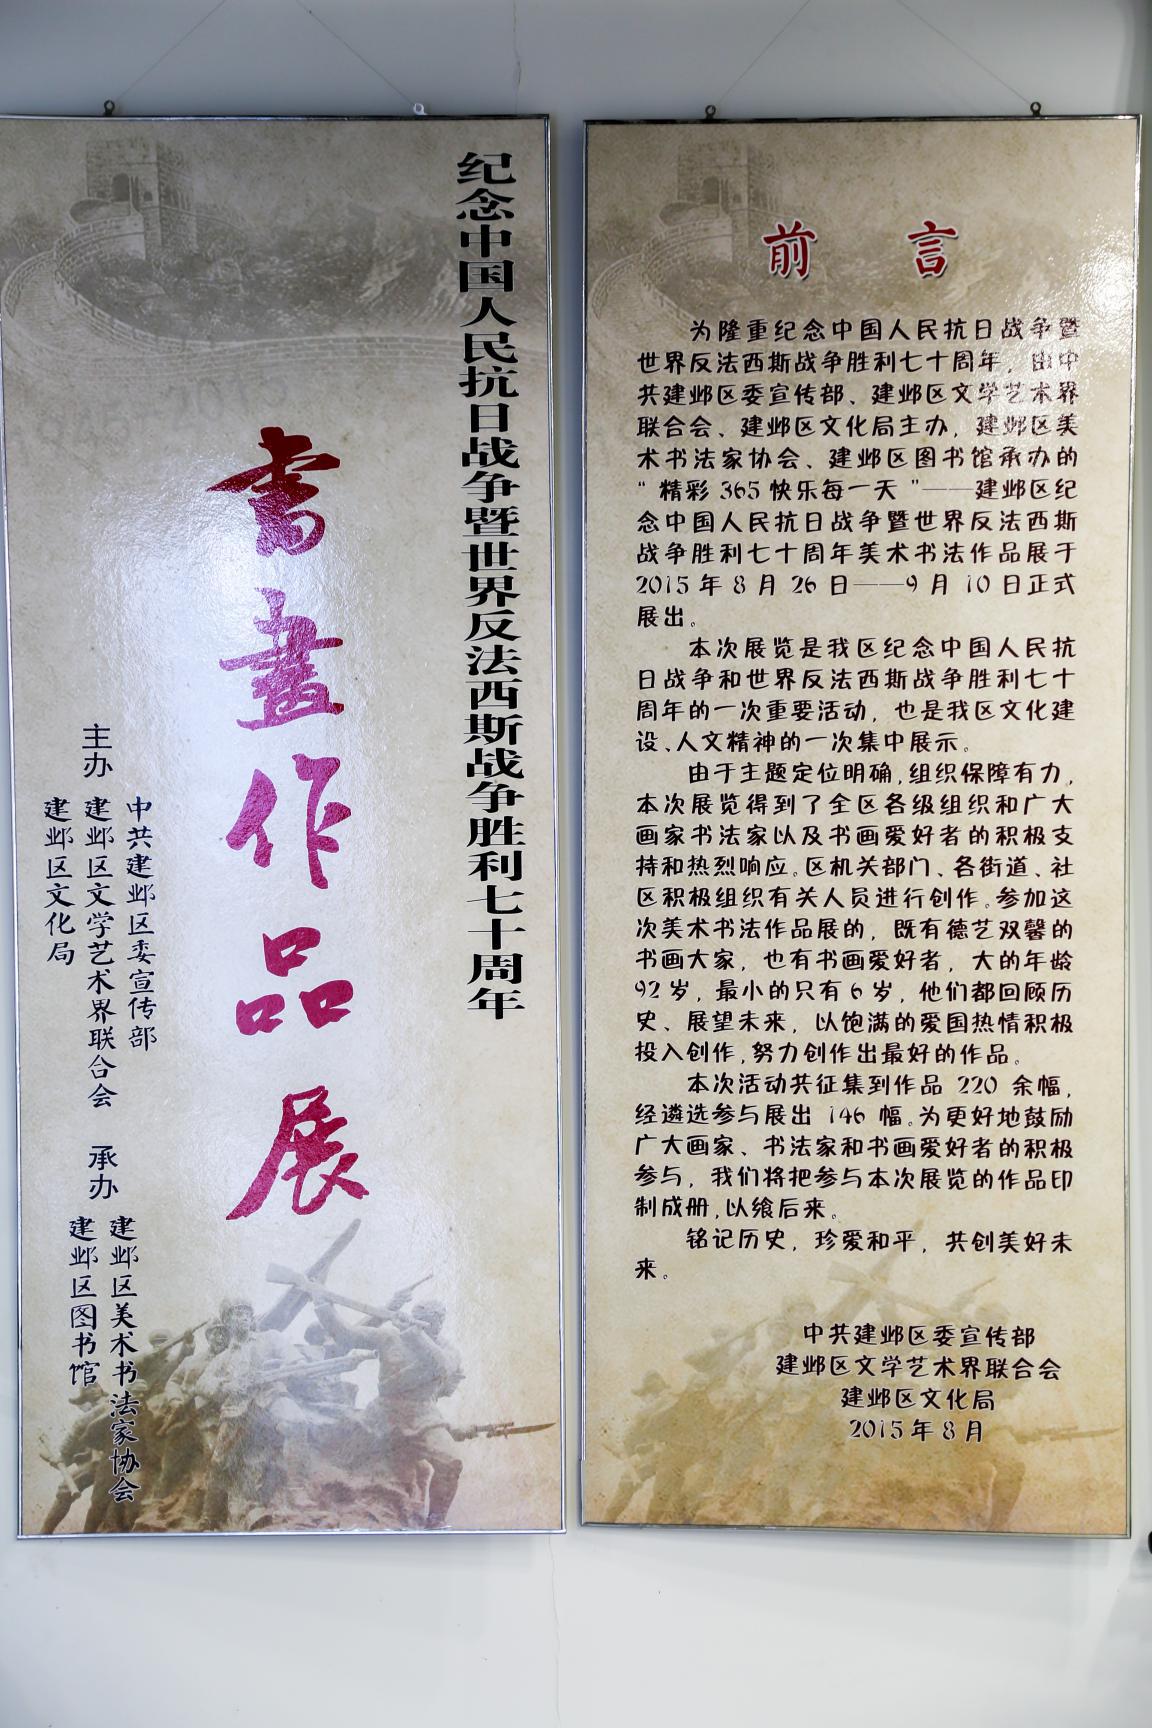 纪念中国人民抗日战争暨世界反法西斯战争胜利七十周年
書畫作品展
主办
中共建邺区委宣传部
建邺区文学艺术界联合会
建邺区文化局
承办
建邺区美术书法家协会
建邺区图书馆
前言
为隆重纪念中国人民抗日战争暨
世界反法西斯战争胜利七十周年，由中
共建邺区委宣传部、建邺区文学艺术界
联合会、建邺区文化局主办，建邺区美
术书法家协会、建邺区图书馆承办的
“精彩 365 快乐每一天”——建邺区纪
念中国人民抗日战争暨世界反法西斯
战争胜利七十周年美术书法作品展于
2015 年 8 月 26 日——9 月 10 日正式
展出。
本次展览是我区纪念中国人民抗
日战争和世界反法西斯战争胜利七十
周年的一次重要活动，也是我区文化建
设、人文精神的一次集中展示。
由于主题定位明确，组织保障有力，
本次展览得到了全区各级组织和广大
画家书法家以及书画爱好者的积极支
持和热烈响应。区机关部门、各街道、社
区积极组织有关人员进行创作。参加这
次美术书法作品展的，既有德艺双馨的
书画大家，也有书画爱好者，大的年龄
92 岁，最小的只有 6 岁，他们都回顾历
史、展望未来，以饱满的爱国热情积极
投入创作，努力创作出最好的作品。
本次活动共征集到作品 220 余幅，
经遴选参与展出 146 幅。为更好地鼓励
广大画家、书法家和书画爱好者的积极
参与，我们将把参与本次展览的作品印
制成册，以飨后来。
铭记历史，珍爱和平，共创美好未
来。
中共建邺区委宣传部
建邺区文学艺术界联合会
建邺区文化局
2015 年 8 月